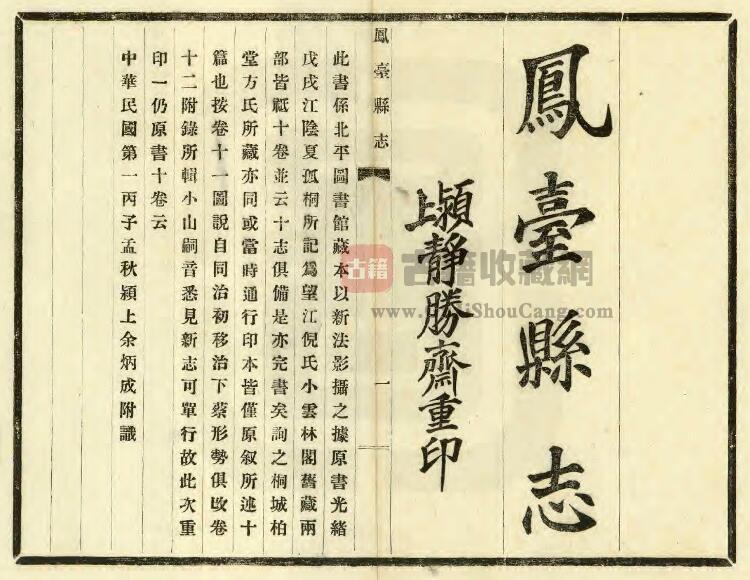 鳳臺縣志
潁上靜勝齋重印
鳳臺縣志
一
此書係北平圖書館藏本以新法影攝之據原書光緒
戊戌江陰夏孤桐所記爲望江倪氏小雲林閣舊藏兩
部皆祗十卷並云十志俱備是亦完書矣詢之桐城柏
堂方氏所藏亦同或當時通行印本皆僅原叙所述十
篇也按卷十一圖說自同治初移治下蔡形勢俱改卷
十二附錄所輯小山嗣音悉見新志可單行故此次重
印一仍原書十卷云
中華民國第一丙子孟秋潁上余炳成附識
古籍
古籍收藏網
www.GuJiShouCang.com